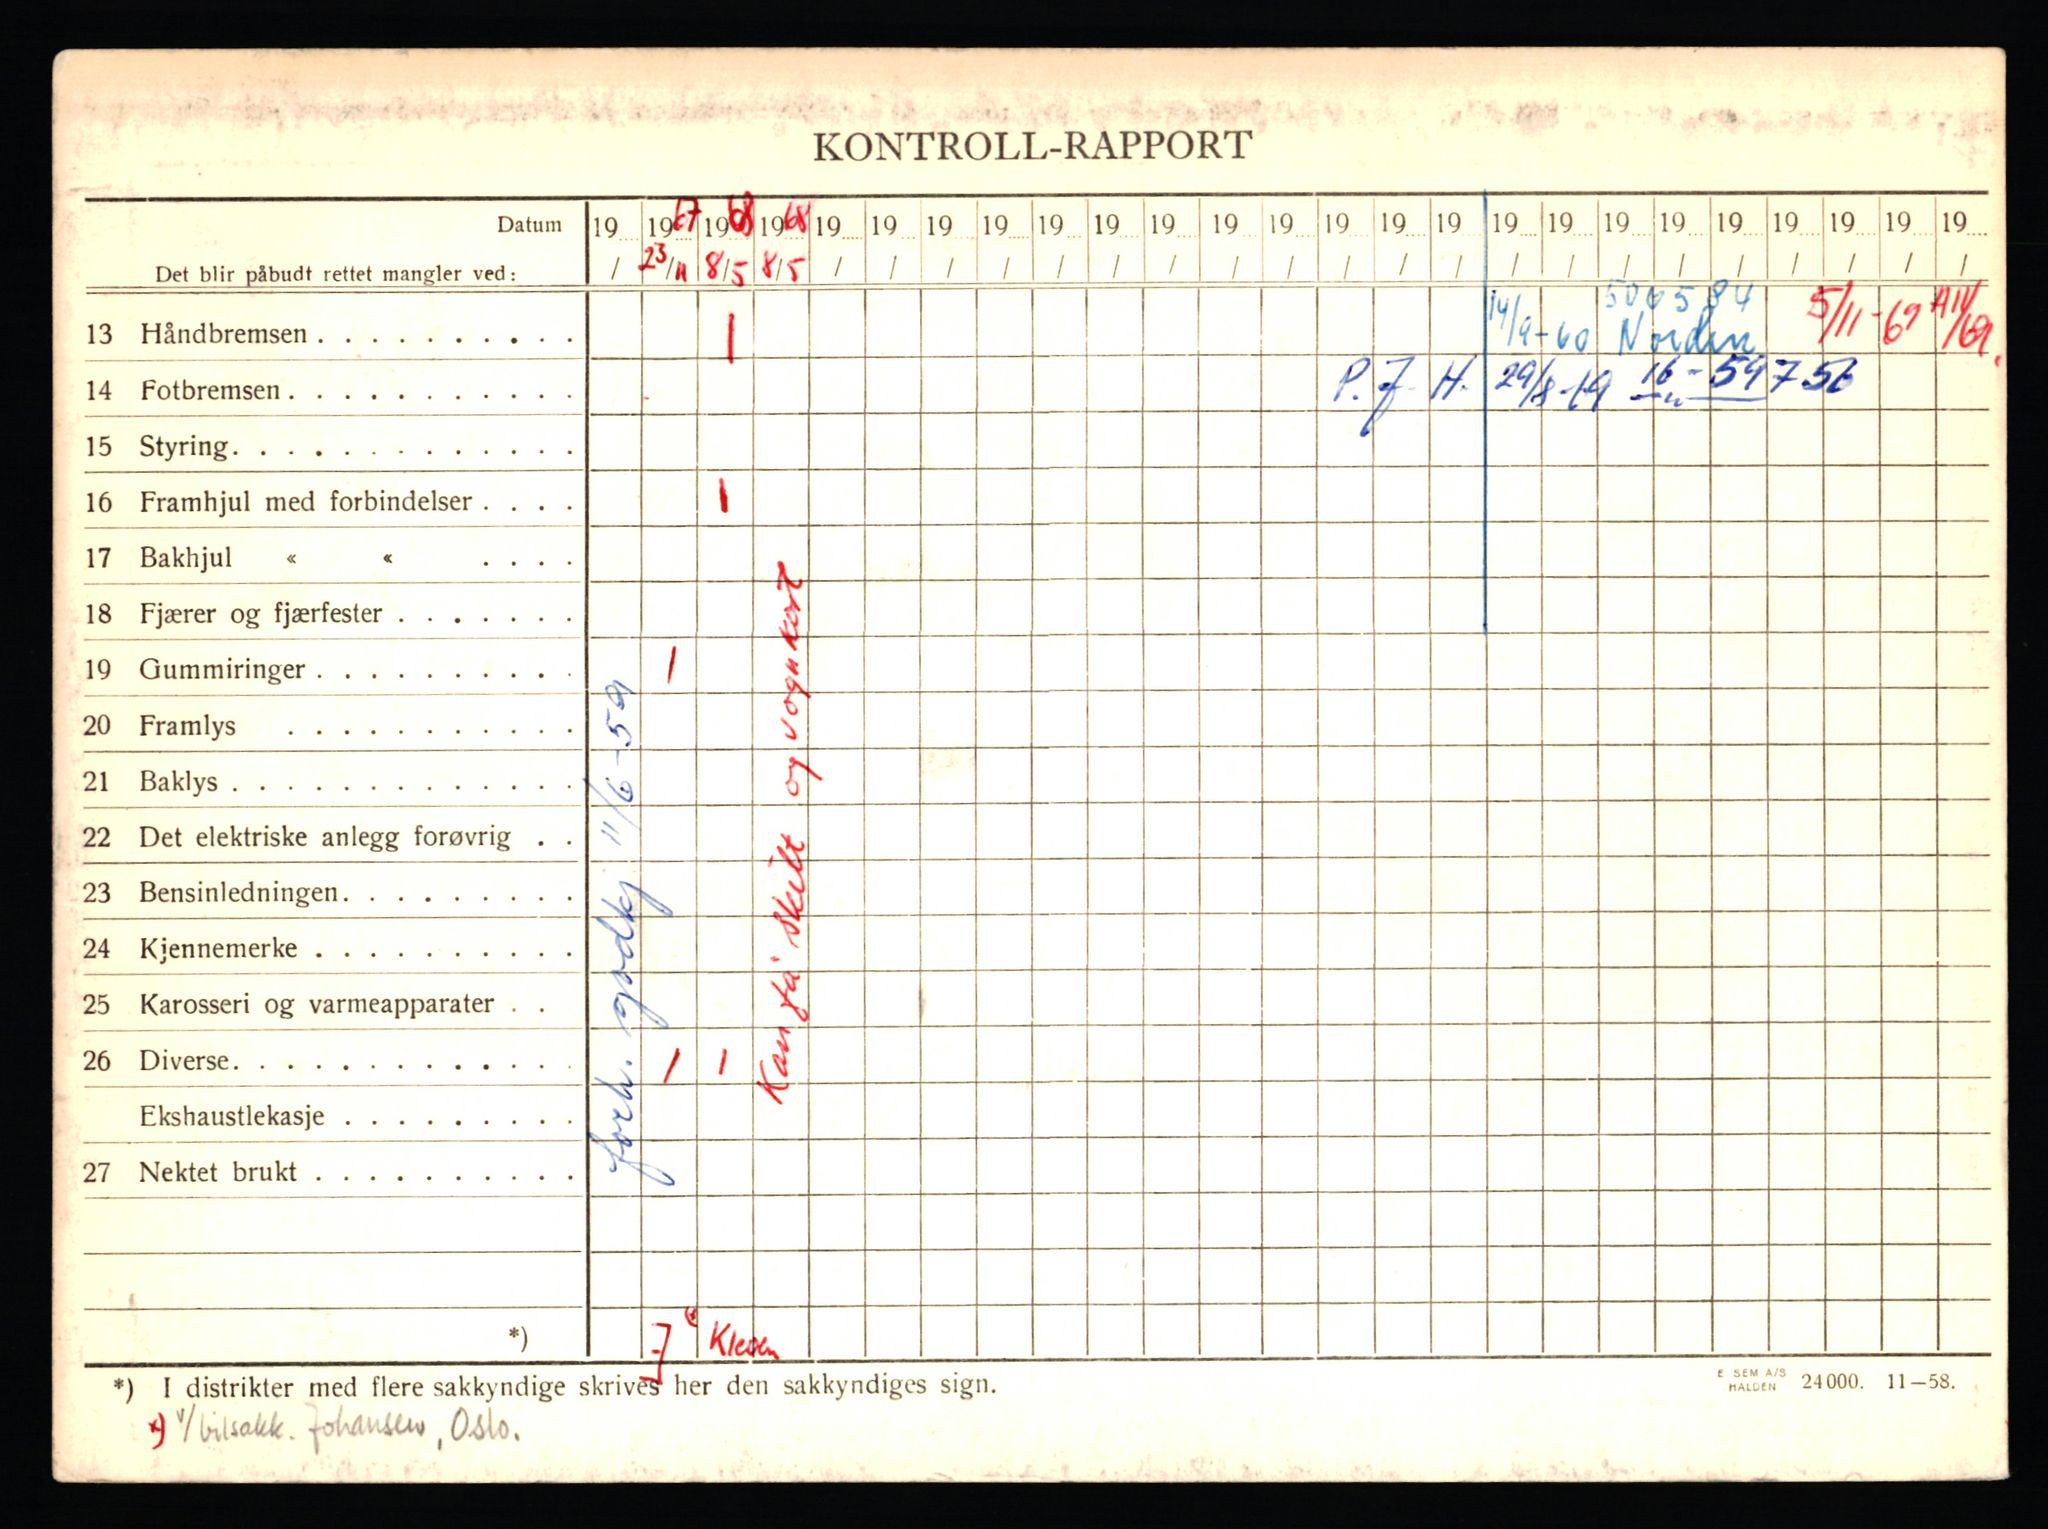 KONTROLL-RAPPORT
Datum 19 1967 1968 1968 19 19 19 19 19 19 19 19 19 19 19 19 19 19 19 19 19 19 19 19 19
Det blir påbudt rettet mangler ved: / 23/11 8/5 8/5 / / / / / / / / / / / / / / / / / / / / /
506584
13 Håndbremsen . . . . . . . . . . I 14/9-60 Norden 5/11-69
14 Fotbremsen . . . . . . . . . . . P. J. H. 29/8- 16-59756
15 Styring . . . . . . . . . . . . .
16 Framhjul med forbindelser . . . . I
17 Bakhjul « « . . . .
18 Fjærer og fjærfester . . . . . . .
19 Gummiringer . . . . . . . . . . I
20 Framlys . . . . . . . . . . .
21 Baklys . . . . . . . . . . . . .
22 Det elektriske anlegg forøvrig . .
23 Bensinledningen . . . . . . . . .
24 Kjennemerke . . . . . . . . . .
25 Karosseri og varmeapparater . .
26 Diverse . . . . . . . . . . . . . I I
Ekshaustlekasje . . . . . . . . .
27 Nektet brukt . . . . . . . . . .
forh. godkj 11/6-59
Kan få skilt og vognkort
*) J * Kleven
*) I distrikter med flere sakkyndige skrives her den sakkyndiges sign.
E SEM A/S
HALDEN 24000. 11—58.
*) v/bilsakk. Johansen, Oslo.